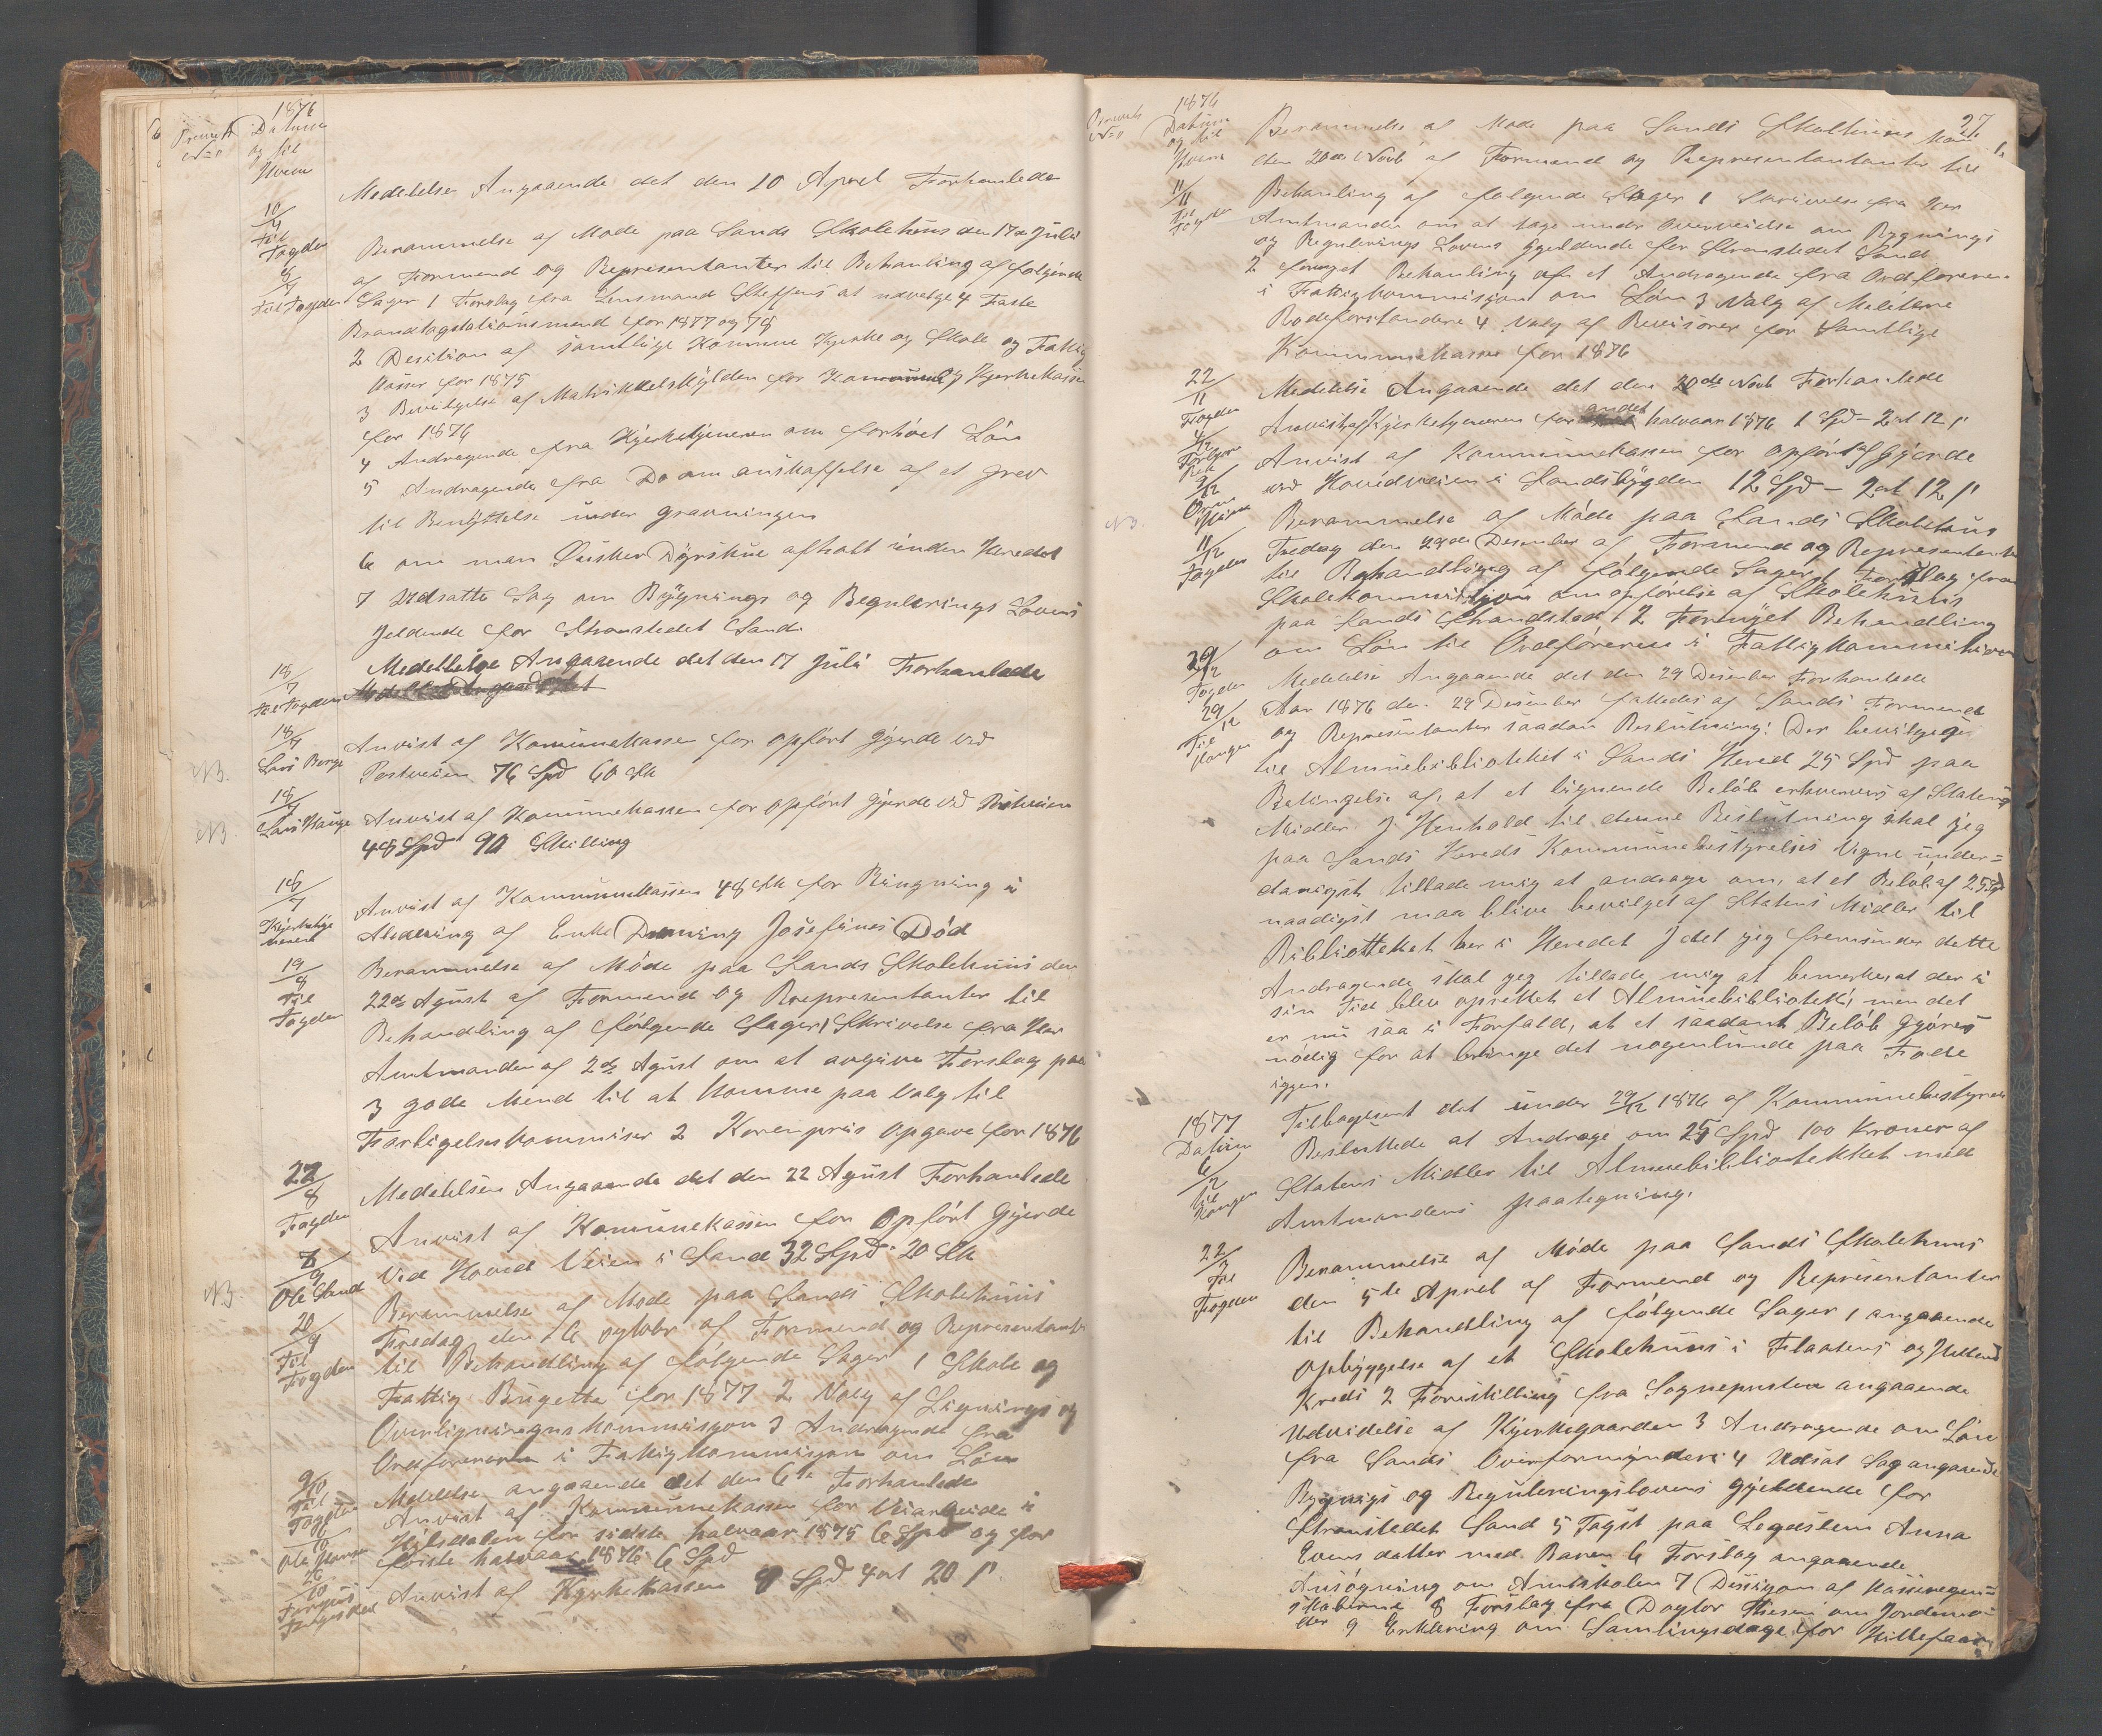 1876
Datum
og til
Hvem
Medelelse Angaaende det den 10 Aprel Forhanlede
10/4
Til
Fogden
Berammelse af Mode paa Sands Skolehuus den 17de Juli
af Formend og Representanter til Behanling af følgende
8/7
Til Fogden
Sager 1 Forslag fra Lensmand Steffens at udvelge 4 Faste
Brandtagstationsmend for 1877 og 78
2 Desition af samtlige Komune Kyrke og Skole og Fattig
Kasser for 1875
3 Bevilgelse af Matrikkelskylden for Komune og Kyrkekassen
for 1876
4 Andragende fra Kyrketjeneren om forhöet Lön
5 Andragende fra Do om anskaffelse af et grev
til Benyttelse under gravningen
6 om man Önsker Dyrskue afholt inden Heredet
7 Udsatte Sag om Bygnings og Regulerings Lovens
Jeldende for Stranstedet Sand
18/7
Til Fogden
Medellelse Angaaende det den 17 Juli Forhanlede
18/7
Lars Berge
Anvist af Komunekassen for opfört gjerde ved
NB.
Postveien 76 Spd 60 Sk
18/7
Lars Hauge
Anvist af Komunekassen for opfört gjerde ved
NB.
48 Spd 90 Skilling
18/7
Anvist af Kommunekassen 48 Sk for Ringning i
Anledning af Enke Dronning Josefines Död
19/8
Til
Fogden
Berammelse af Möde paa Sands Skolehuus den
22de Agust af Formend og Representanter til
Behandling af følgende Sager 1 Skrivelse fra Her
Amtmanden af 2de Agust om at avgive Forslag paa
3 gode Mend til at komme paa Valg til
Forligelseskommiser 2 Korenpris opgave for 1876
22/8
Fogden
Medelelsen Angaaende det den 22 Agust Forhanlede
Anvist af Komunekassen for Opfört Gjerde
8/9
Ole Sande
Ved Hoved Veien i Sand 32 Spd 20 Sk
NB.
20/9
Til
Fogden
Berammelse af Mode paa Sands Skolehuus
Fredag den 6 oqtobr af Formend og Representanter
til Behandling af følgende Sager 1 Skole og
Fattig Bugette for 1877 2 Valg af Lignings og
Overligningskommisjon 3 Andragende fra
Ordföreren i Fattigkommisjon om Lön
9/10
Til
Fogden
Medelelsen angaaende det den 6te Forhanlede
Anvist af Kommunekassen for Veiarbeide i
Ole Hansen
Hylsdalen for sidste halvaar 1875 6 Spd og for
förste halvaar 1876 6 Spd
26/10
Anvist af Kyrkekassen 9 Spd 4 ort 20 s
1876
Datum
og til
Hvem
27
Berammelse af Mode paa Sands Skolehuus
den 20de Novb af Formend og Representantanter til
11/11
Til
Fogden
Behanling af følgende Sager 1 Skrivelse fra Her
Amtmanden om at tage under overveielse om Bygnings
og Regulerings Lovens gjeldende for Stranstedet Sand
2 fornyet Behanling af et Andragende fra Ordföreren
i Fattigkommisjon om Lön 3 Valg af Militere
Rodeforstandere 4 Valg af Revisorer for Samtlige
Kommunekasser for 1876
22/11
Fogden
Medelelse Angaaende det den 20de Novb Forhanlede
4/12
Anvist af Kyrketjeneren for andet halvaar 1876 1 Spd - 2 ort 12 s
9/12
Anvist af Kommunekassen for opfört Gjerde
ved Hovedveien i Sandsbygden 12 Spd - 2 ort 12 s
NB.
11/12
Fogden
Berammelse af Möde paa Sands Skolehuus
Fredag den 29de Desember af Formend og Representanter
til Behandling af følgende Sager 1 Forslag fra
Skolekommisjon om opförelse af Skolehuus
paa Sands Strandsted 2 Fornyet Behandling
om Lön til Ordföreren i Fattigkommisjon
29/12
Fogden
Medelelse Angaaende det den 29 Desember Forhanlede
29/12
Til
Kongen
Aar 1876 den 29 Desember fattedes af Sands Formend
og Representanter saadan Beslutning: Der bevilges
til Almuebiblioteket i Sands Hered 25 Spd paa
Betingelse af, at et lignende Belöb erhverves af Statens
Midler. I Henhold til denne Beslutning skal jeg
paa Sands Hereds Kommunebestyrelses Vegne under=
danigst tillade mig at andrage om, at et Belöb af 25 Spd
naadigst maa blive bevilget af Statens Midler til
Bibliotteket her i Heredet I det jeg fremsender dette
Andragende skal jeg tillade mig at bemerke, at der i
sin Tid blev oprettet et Almuebibliotek, men det
er nu saa i Forfald, at et saadant Belöb gjöres
nödig for at bringe det nogenlunde paa Fode
iggen.
1877
Datum
Til
Kongen
Tilbagesent det under 29/12 1876 af Kommunebestyrelse
Besluttede at Andrage om 25 Spd 100 Kroner af
Statens Midler til Almuebibliotekket med
Amtmandens paategning.
22/3
Til
Fogden
Berammelse af Möde paa Sands Skolehuus
den 5te Aprel af Formend og Representanter
til Behandling af følgende Sager 1 angaaende
opbyggelse af et Skolehuus i
Kreds 2 Forestilling fra Sognepresten angaaende
Udvidelse af Kyrkegaarden 3 Andragende om Lön
fra Sands Overformynderi 4 Udsat Sag angaaende
Bygnigs og Reguleringslovens gjeldende for
Stranstedet Sand 5 Tagst paa Legdslem Anna
Evensdatter med Barn 6 Forslag angaaende
Ansögning om Amtskolen 7 Desisjon af Kasseregen=
skaberne 8 Forslag fra Dogtor Thesen om Jordemö=
der 9 Erklering om Samlingsdage for